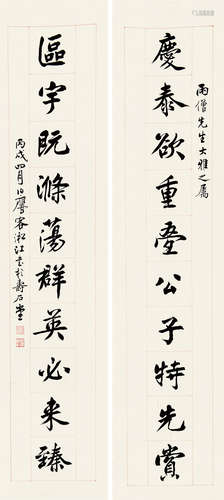 慶泰欲重疊公子特先賞
雨僧先生大雅之屬
區宇既滌蕩群英必來臻
丙戌四月 客淞江 於壽石